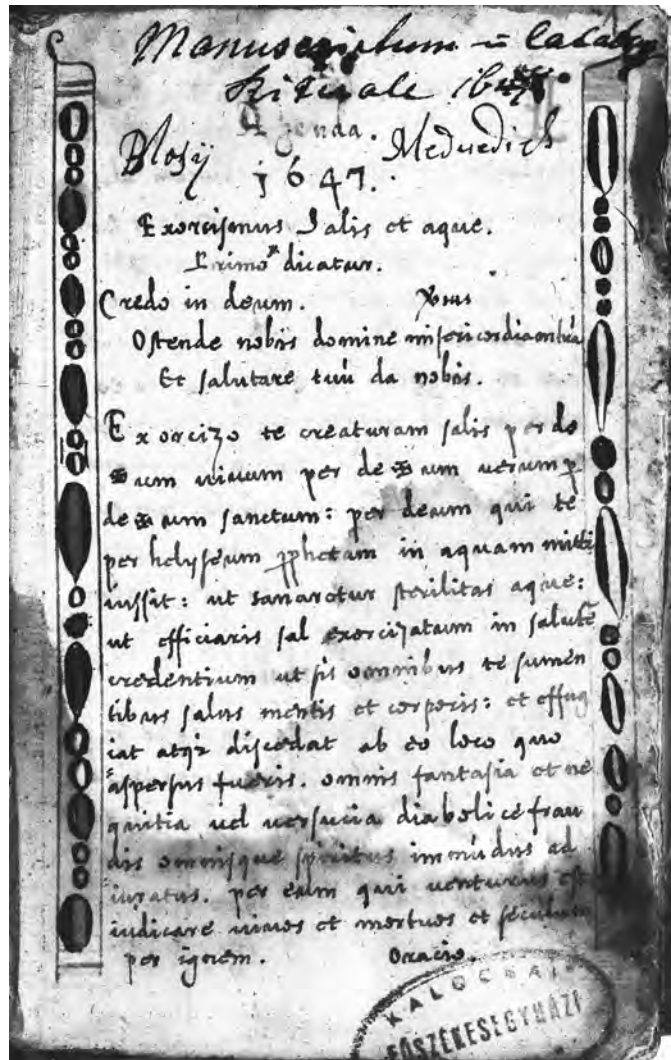 Manuscriptum
Rituale
Agenda.
Blasij Meduedich
1647.
Exorcismus Salis et aque.
Primo dicatur.
Credo in deum.
Ostende nobis domine misericordiam tuã
Et salutare tuũ da nobis.
Exorcizo te creaturam salis per de
✠ um uiuum per de ✠ um uerum p
de ✠ um sanctum: per deum qui te
per helyseum pphetam in aquam mitti
iussit: ut sanaretur sterilitas aque:
ut efficiaris sal exorcizatum in salutẽ
credentium ut sis omnibus te sumen
tibus salus mentis et corporis: et effug
iat atqz discedat ab eo loco quo
aspersus fueris. omnis fantasia et ne
quitia uel uersucia diabolice frau
dis omnisque spiritus immũdus ad
iuratus. per eum qui uenturus est
iudicare uiuos et mortuos et seculum
per ignem. Oracio.
KALOCSAI
FŐSZÉKESEGYHÁZI